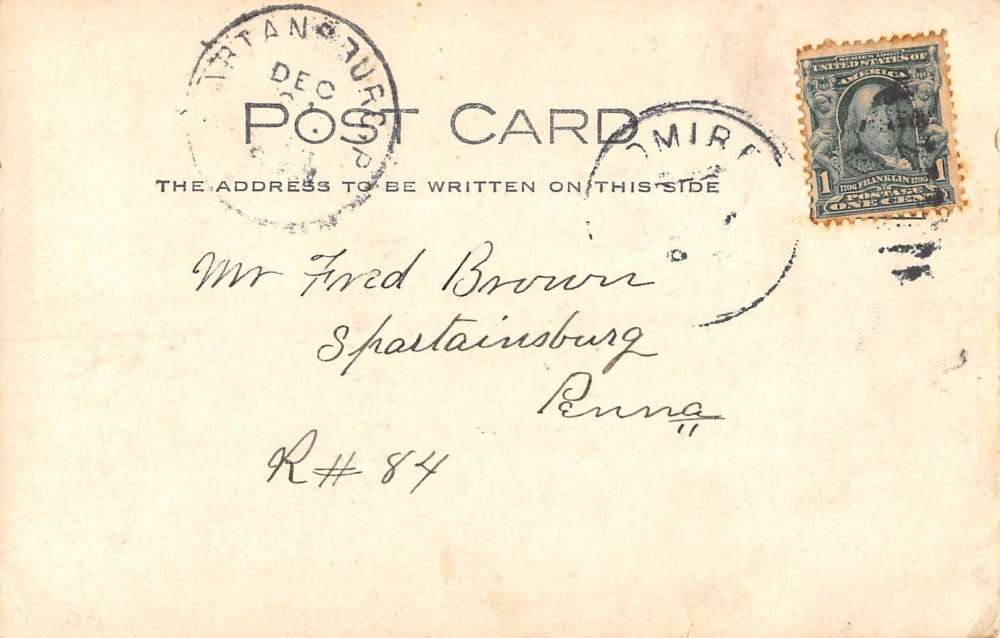 DEC
POST CARD
THE ADDRESS TO BE WRITTEN ON THIS SIDE
SERIES 1902
UNITED STATES OF
AMERICA
1 1
1706 FRANKLIN 1790
POSTAGE
ONE CENT
Mr Fred Brown
Spartainsburg
Penna
R # 84